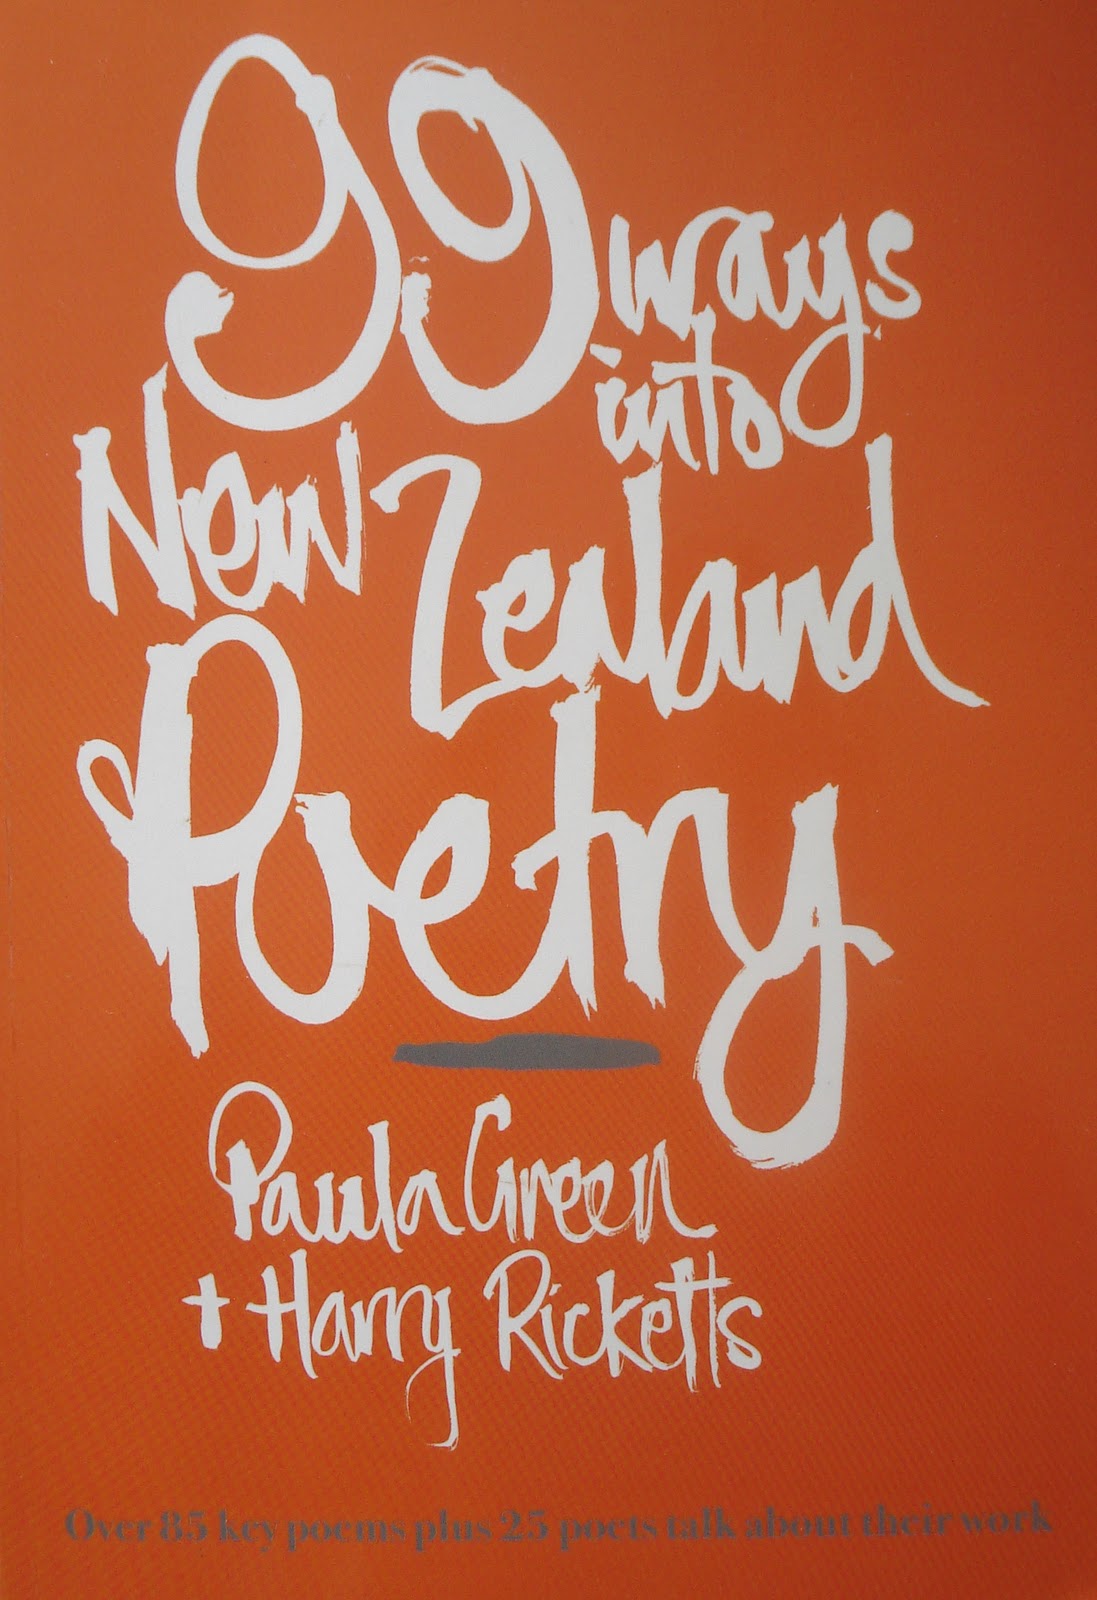 99 ways
into
New Zealand
Poetry
Paula Green
+ Harry Ricketts
Over 85 key poems plus 25 poets talk about their work